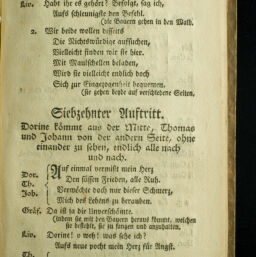 Liv. Habt ihr es gehört? Befolgt, sag ich,
Aufs schleunigste den Befehl.
(die Bauern gehen in den Wald.
2. Wir beide wollen disseits
Die Nichtswürdige aufsuchen,
Vielleicht finden wir sie hier.
Mit Maulschellen beladen,
Wird sie vielleicht endlich doch
Sich zur Eingezogenheit bequemen.
(Sie gehen beyde auf verschiedene Seiten.
Siebzehnter Auftritt.
Dorine kömmt aus der Mitte, Thomas
und Johann von der andern Seite, ohne
einander zu sehen, endlich alle nach
und nach.
Dor. Auf einmal vermißt mein Herz
Th. Den süssen Frieden, alle Ruh.
Joh. Vermöchte doch nur dieser Schmerz,
Mich des Lebens zu berauben.
Gräf. Da ist ja die Unverschämte.
(Indem sie mit den Bauern heraus kommt, welchen
sie befiehlt, sie zu fangen und anzuhalten.
Liv. Dorine! o weh! was sehe ich?
Aufs neue pocht mein Herz für Angst.
Th.